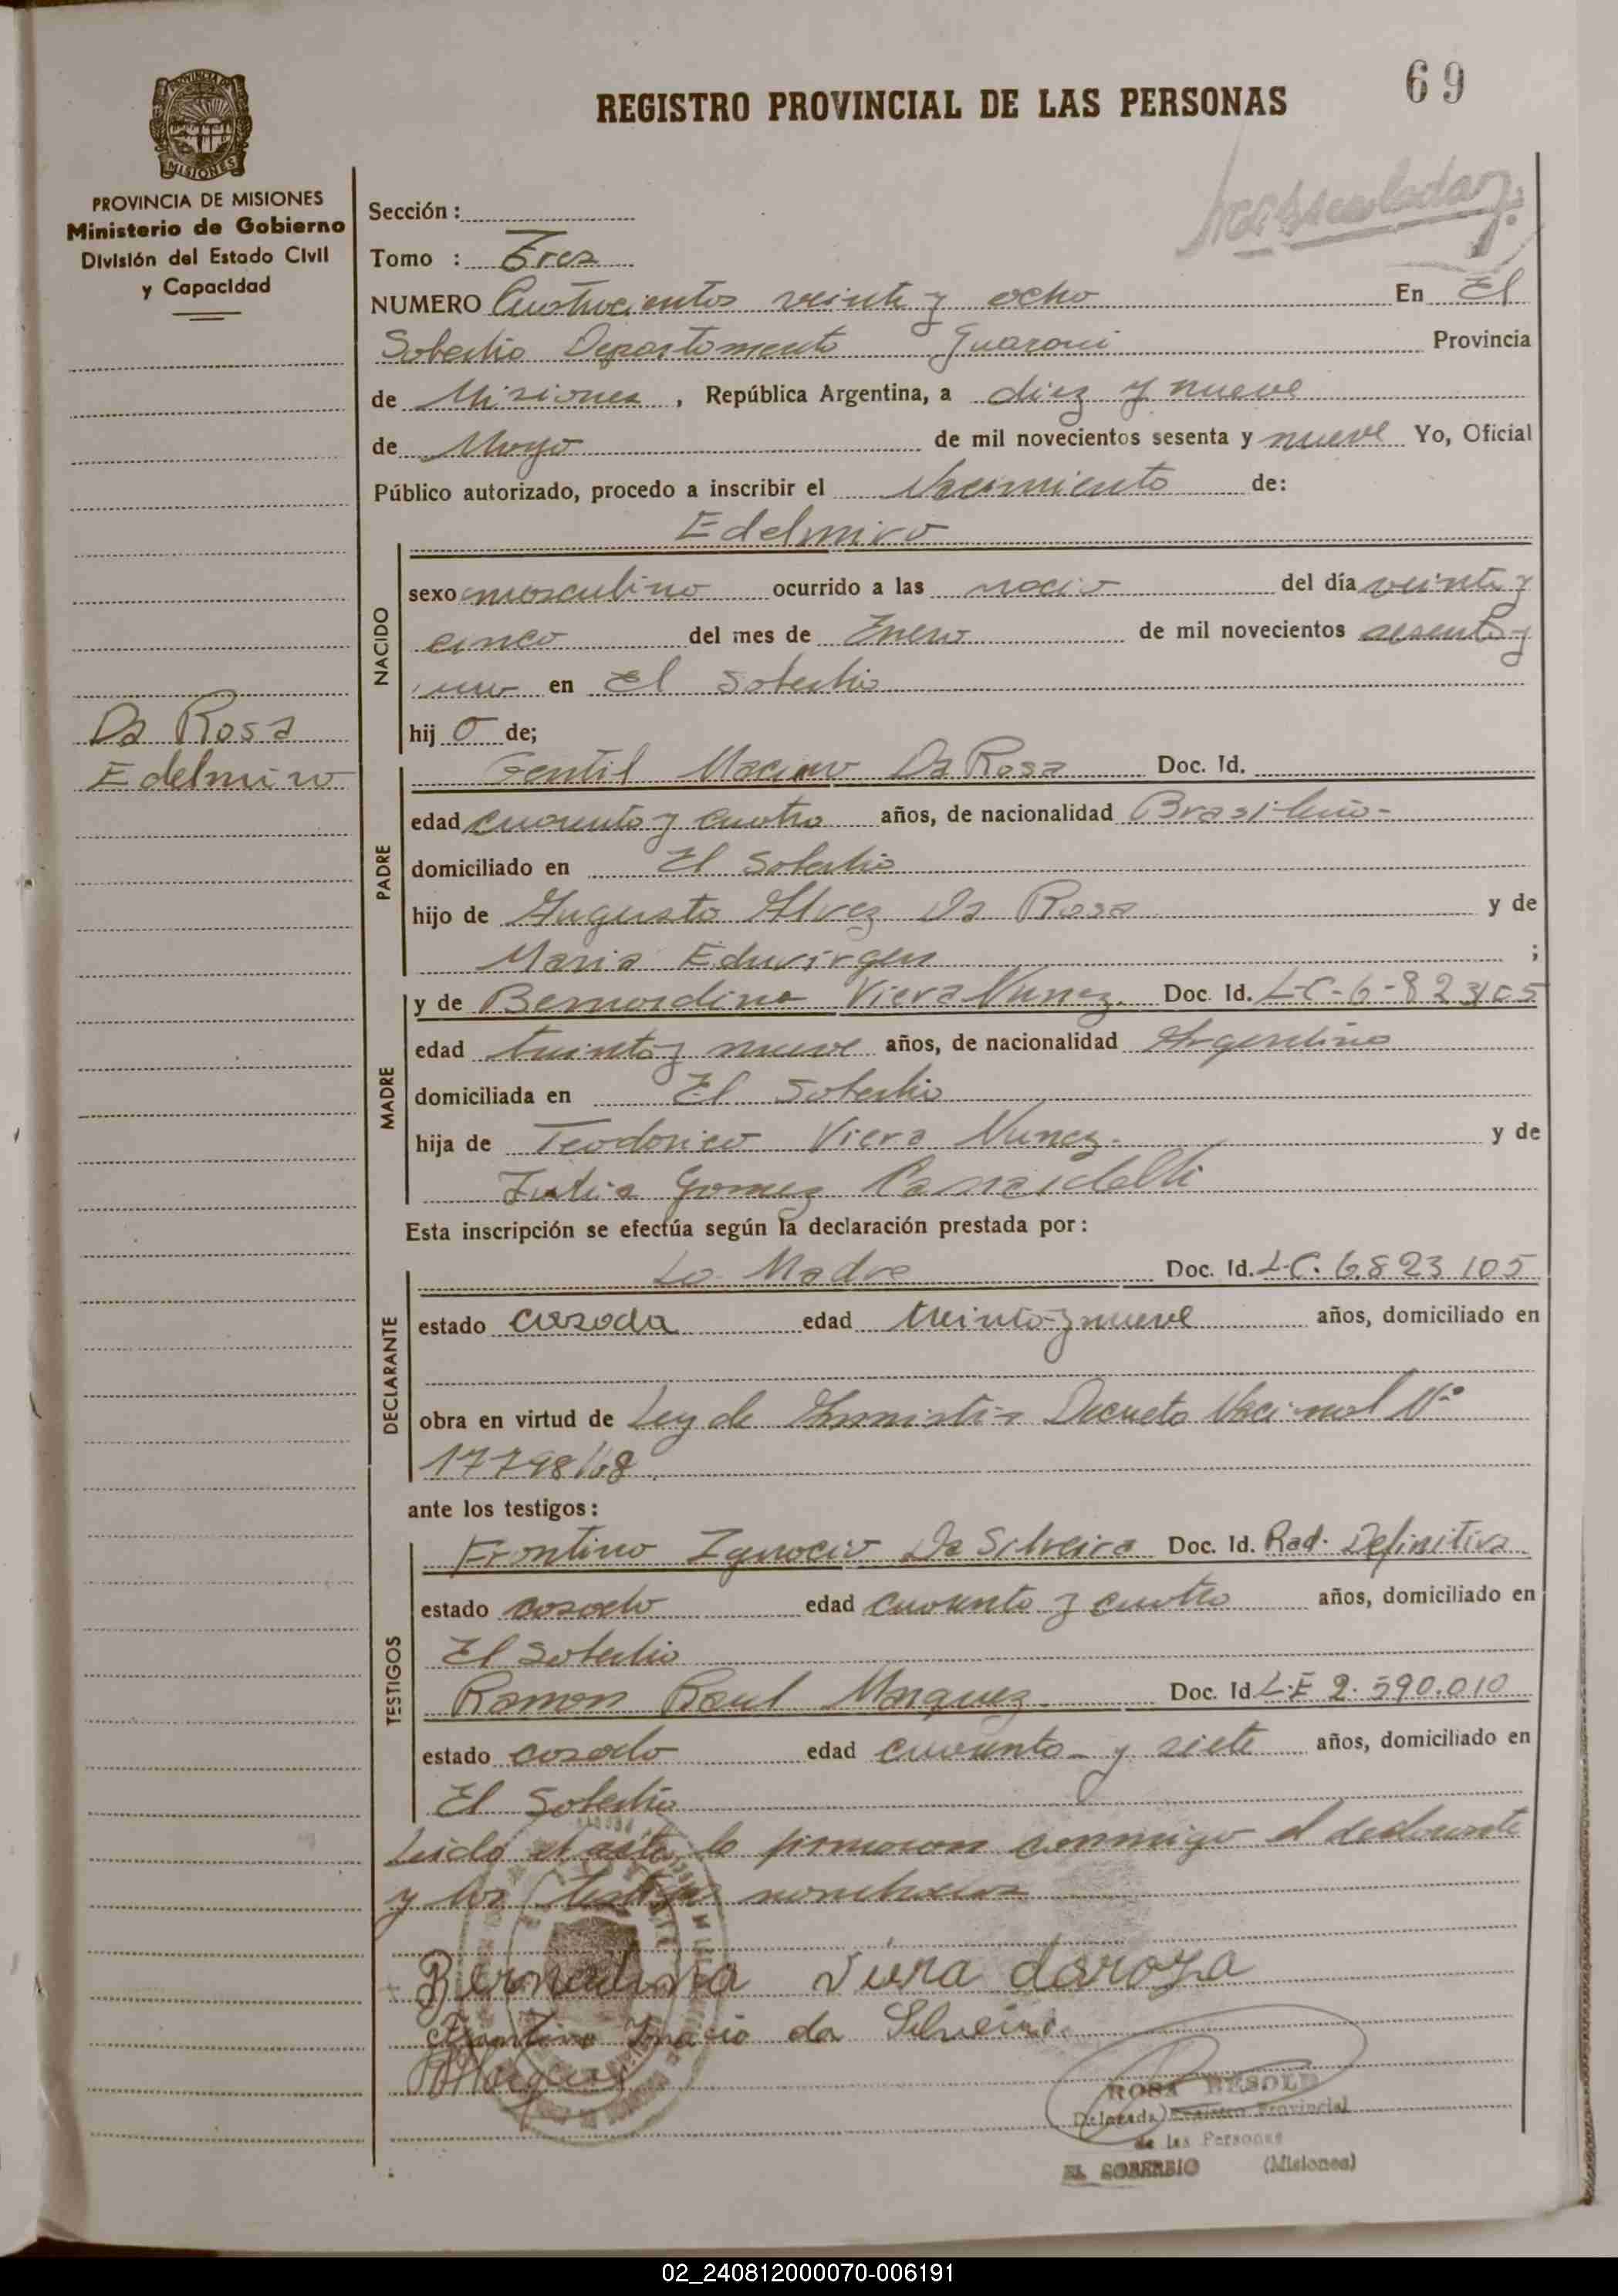 69
REGISTRO PROVINCIAL DE LAS PERSONAS
PROVINCIA DE MISIONES
MISIONES
PROVINCIA DE MISIONES
Ministerio de Gobierno
División del Estado Civil
y Capacidad
Sección :
Tomo : Tres
NUMERO Cuatrocientos veinte y ocho En El
Soberbio Departamento Guarani Provincia
de Misiones, República Argentina, a diez y nueve
de Mayo de mil novecientos sesenta y nueve Yo, Oficial
Público autorizado, procedo a inscribir el Nacimiento de:
Edelmiro
NACIDO
sexo masculino ocurrido a las nacio del día veinte y
cinco del mes de Enero de mil novecientos sesenta y
uno en El Soberbio
hijo de;
Da Rosa
Edelmiro
PADRE
Gentil Da Rosa Doc. Id.
edad cuarenta y cuatro años, de nacionalidad Brasileño-
domiciliado en El Soberbio
hijo de Augusto Alvez Da Rosa y de
Maria Eduvirgen ;
MADRE
y de Bernardina Viera Nunez. Doc. Id. L-C-6-823105
edad treinta y nueve años, de nacionalidad Argentina
domiciliada en El Soberbio
hija de Teodorico Viera Nunez. y de
Gomez
Esta inscripción se efectúa según la declaración prestada por:
DECLARANTE
La Madre Doc. Id. L-C. 6.823105
estado casada edad treinta y nueve años, domiciliado en
obra en virtud de Ley de Amnistia Decreto Nacional Nº
17798/68.
ante los testigos:
TESTIGOS
Frontino Ignacio Da Silveira Doc. Id. Rad. Definitiva
estado casado edad cuarenta y cuatro años, domiciliado en
El Soberbio
Ramon Raul Marquez Doc. Id L.E 2.590.010
estado casado edad cuarenta y siete años, domiciliado en
El Soberbio
Leido el acta, la firmaron conmigo el declarante
y los testigos nombrados
Bernardina Viera daroza
Frontino Ignacio da Silveira
ROSA BESOLD
Delegada Registro Provincial
de las Personas
EL SOBERBIO (Misiones)
02_240812000070-006191